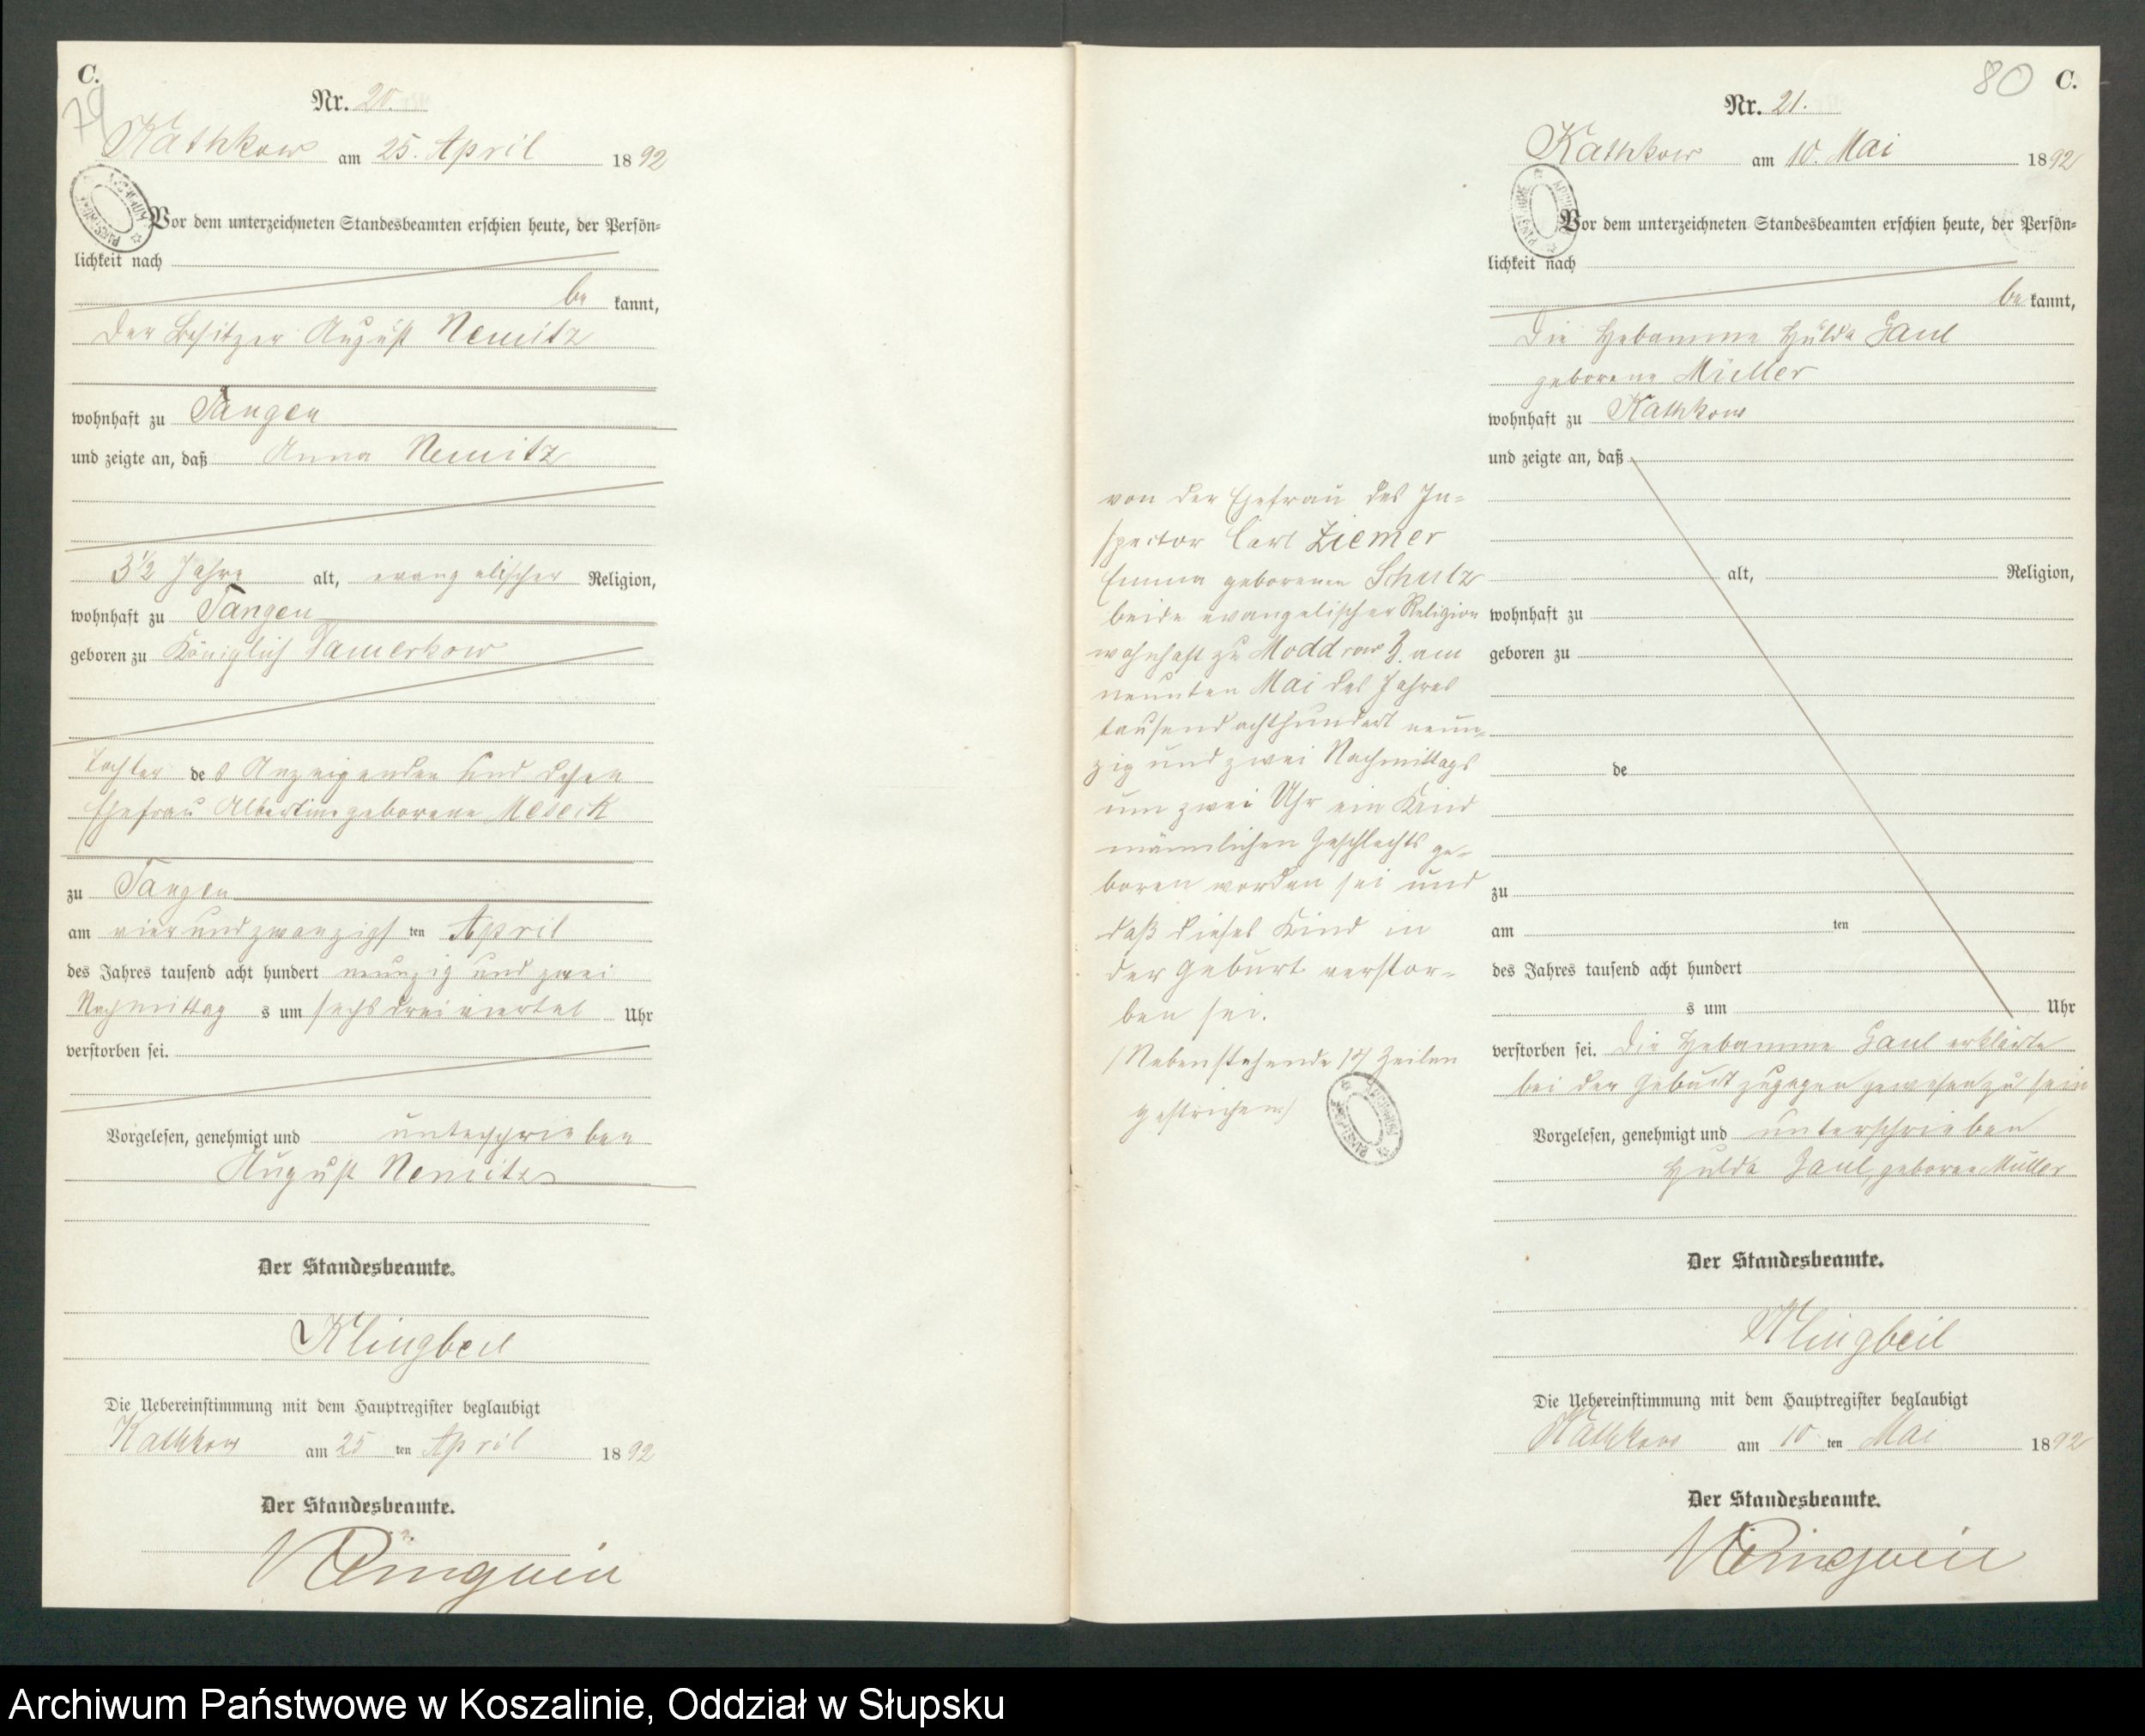 C.
79
Nr. 20.
Kathkow am 25. April 1892
Vor dem unterzeichneten Standesbeamten erschien heute, der Persön-
lichkeit nach
be kannt,
Der Besitzer August Nemitz
wohnhaft zu Tangen
und zeigte an, daß Anna Nemitz
3 1/2 Jahre alt, evangelischer Religion,
wohnhaft zu Tangen
geboren zu Königlich Damerkow
Tochter des Anzeigenden und dessen
Ehefrau Albertine geborene Meseck
zu Tangen
am vier und zwanzigsten April
des Jahres tausend acht hundert neunzig und zwei
Nachmittags um sechs drei viertel Uhr
verstorben sei.
Vorgelesen, genehmigt und unterschrieben
August Nemitz
Der Standesbeamte.
Klingbeil
Die Uebereinstimmung mit dem Hauptregister beglaubigt
Kathkow am 25 ten April 1892
Der Standesbeamte.
80 C.
Nr. 21.
Kathkow am 10. Mai 1892
Vor dem unterzeichneten Standesbeamten erschien heute, der Persön-
lichkeit nach
be kannt,
Die Hebamme Hulda Gaul
geborene Müller
wohnhaft zu Kathkow
und zeigte an, daß
von der Ehefrau des In-
spector Carl Ziemer
Emma geborenen Schulz
beide evangelischer Religion
wohnhaft zu Moddrow B. am
neunten Mai des Jahres
tausend achthundert neun-
zig und zwei Nachmittags
um zwei Uhr ein Kind
männlichen Geschlechts ge-
boren worden sei und
daß dieses Kind in
der Geburt verstor-
ben sei.
(Nebenstehende 14 Zeilen
gestrichen)
alt, Religion,
wohnhaft zu
geboren zu
de
zu
am ten
des Jahres tausend acht hundert
s um Uhr
verstorben sei. Die Hebamme Gaul erklärte
bei der Geburt zugegen gewesen zu sein
Vorgelesen, genehmigt und unterschrieben
Hulda Gaul, geborne Müller
Der Standesbeamte.
Klingbeil
Die Uebereinstimmung mit dem Hauptregister beglaubigt
Kathkow am 10 ten Mai 1892
Der Standesbeamte.
Archiwum Państwowe w Koszalinie, Oddział w Słupsku